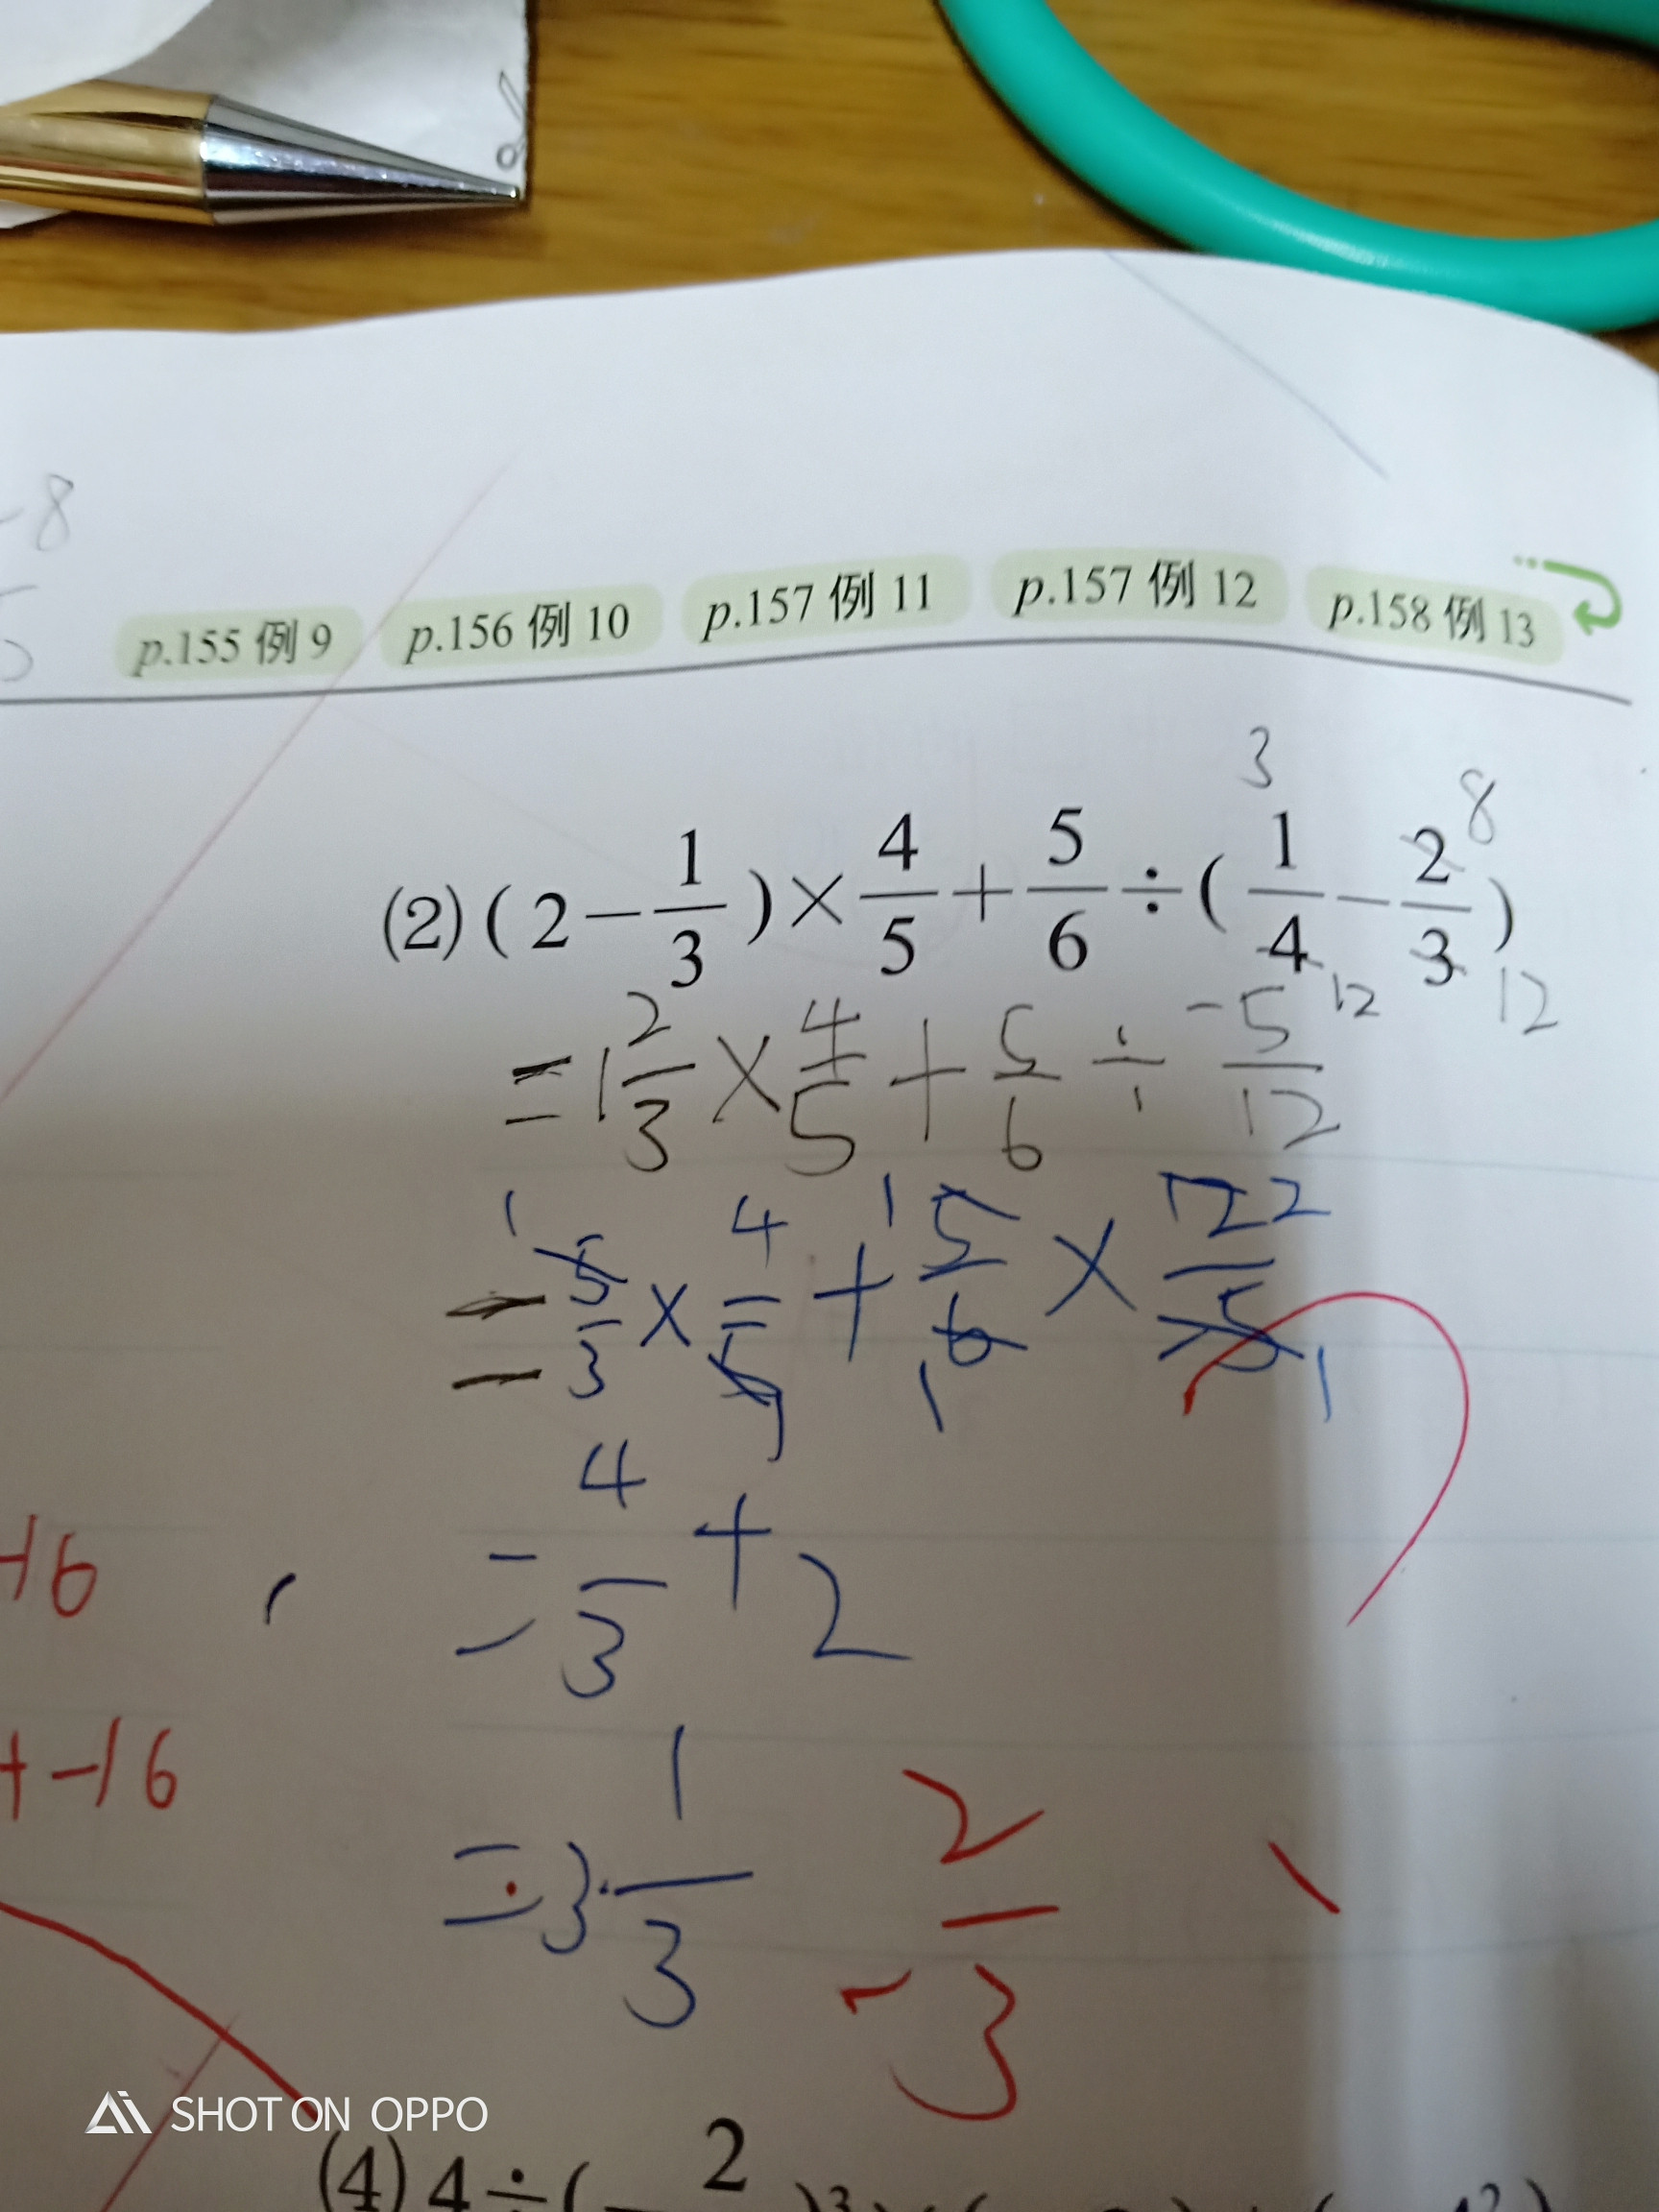 -8
5
p.155 例 9 p.156 例 10 p.157 例 11 p.157 例 12 p.158 例 13
3 8
(2) ( 2 - 1/3 ) × 4/5 + 5/6 ÷ ( 1/4 - 2/3 )
12 12
= 1 2/3 × 4/5 + 5/6 ÷ -5/12
1 4 1 2
= 5/3 × 4/5 + 5/6 × 12/-5
1 1 1
= 4/3 + 2
-16
+-16
= 3 1/3 -2/3
SHOT ON OPPO
(4) 4 ÷ ( 2